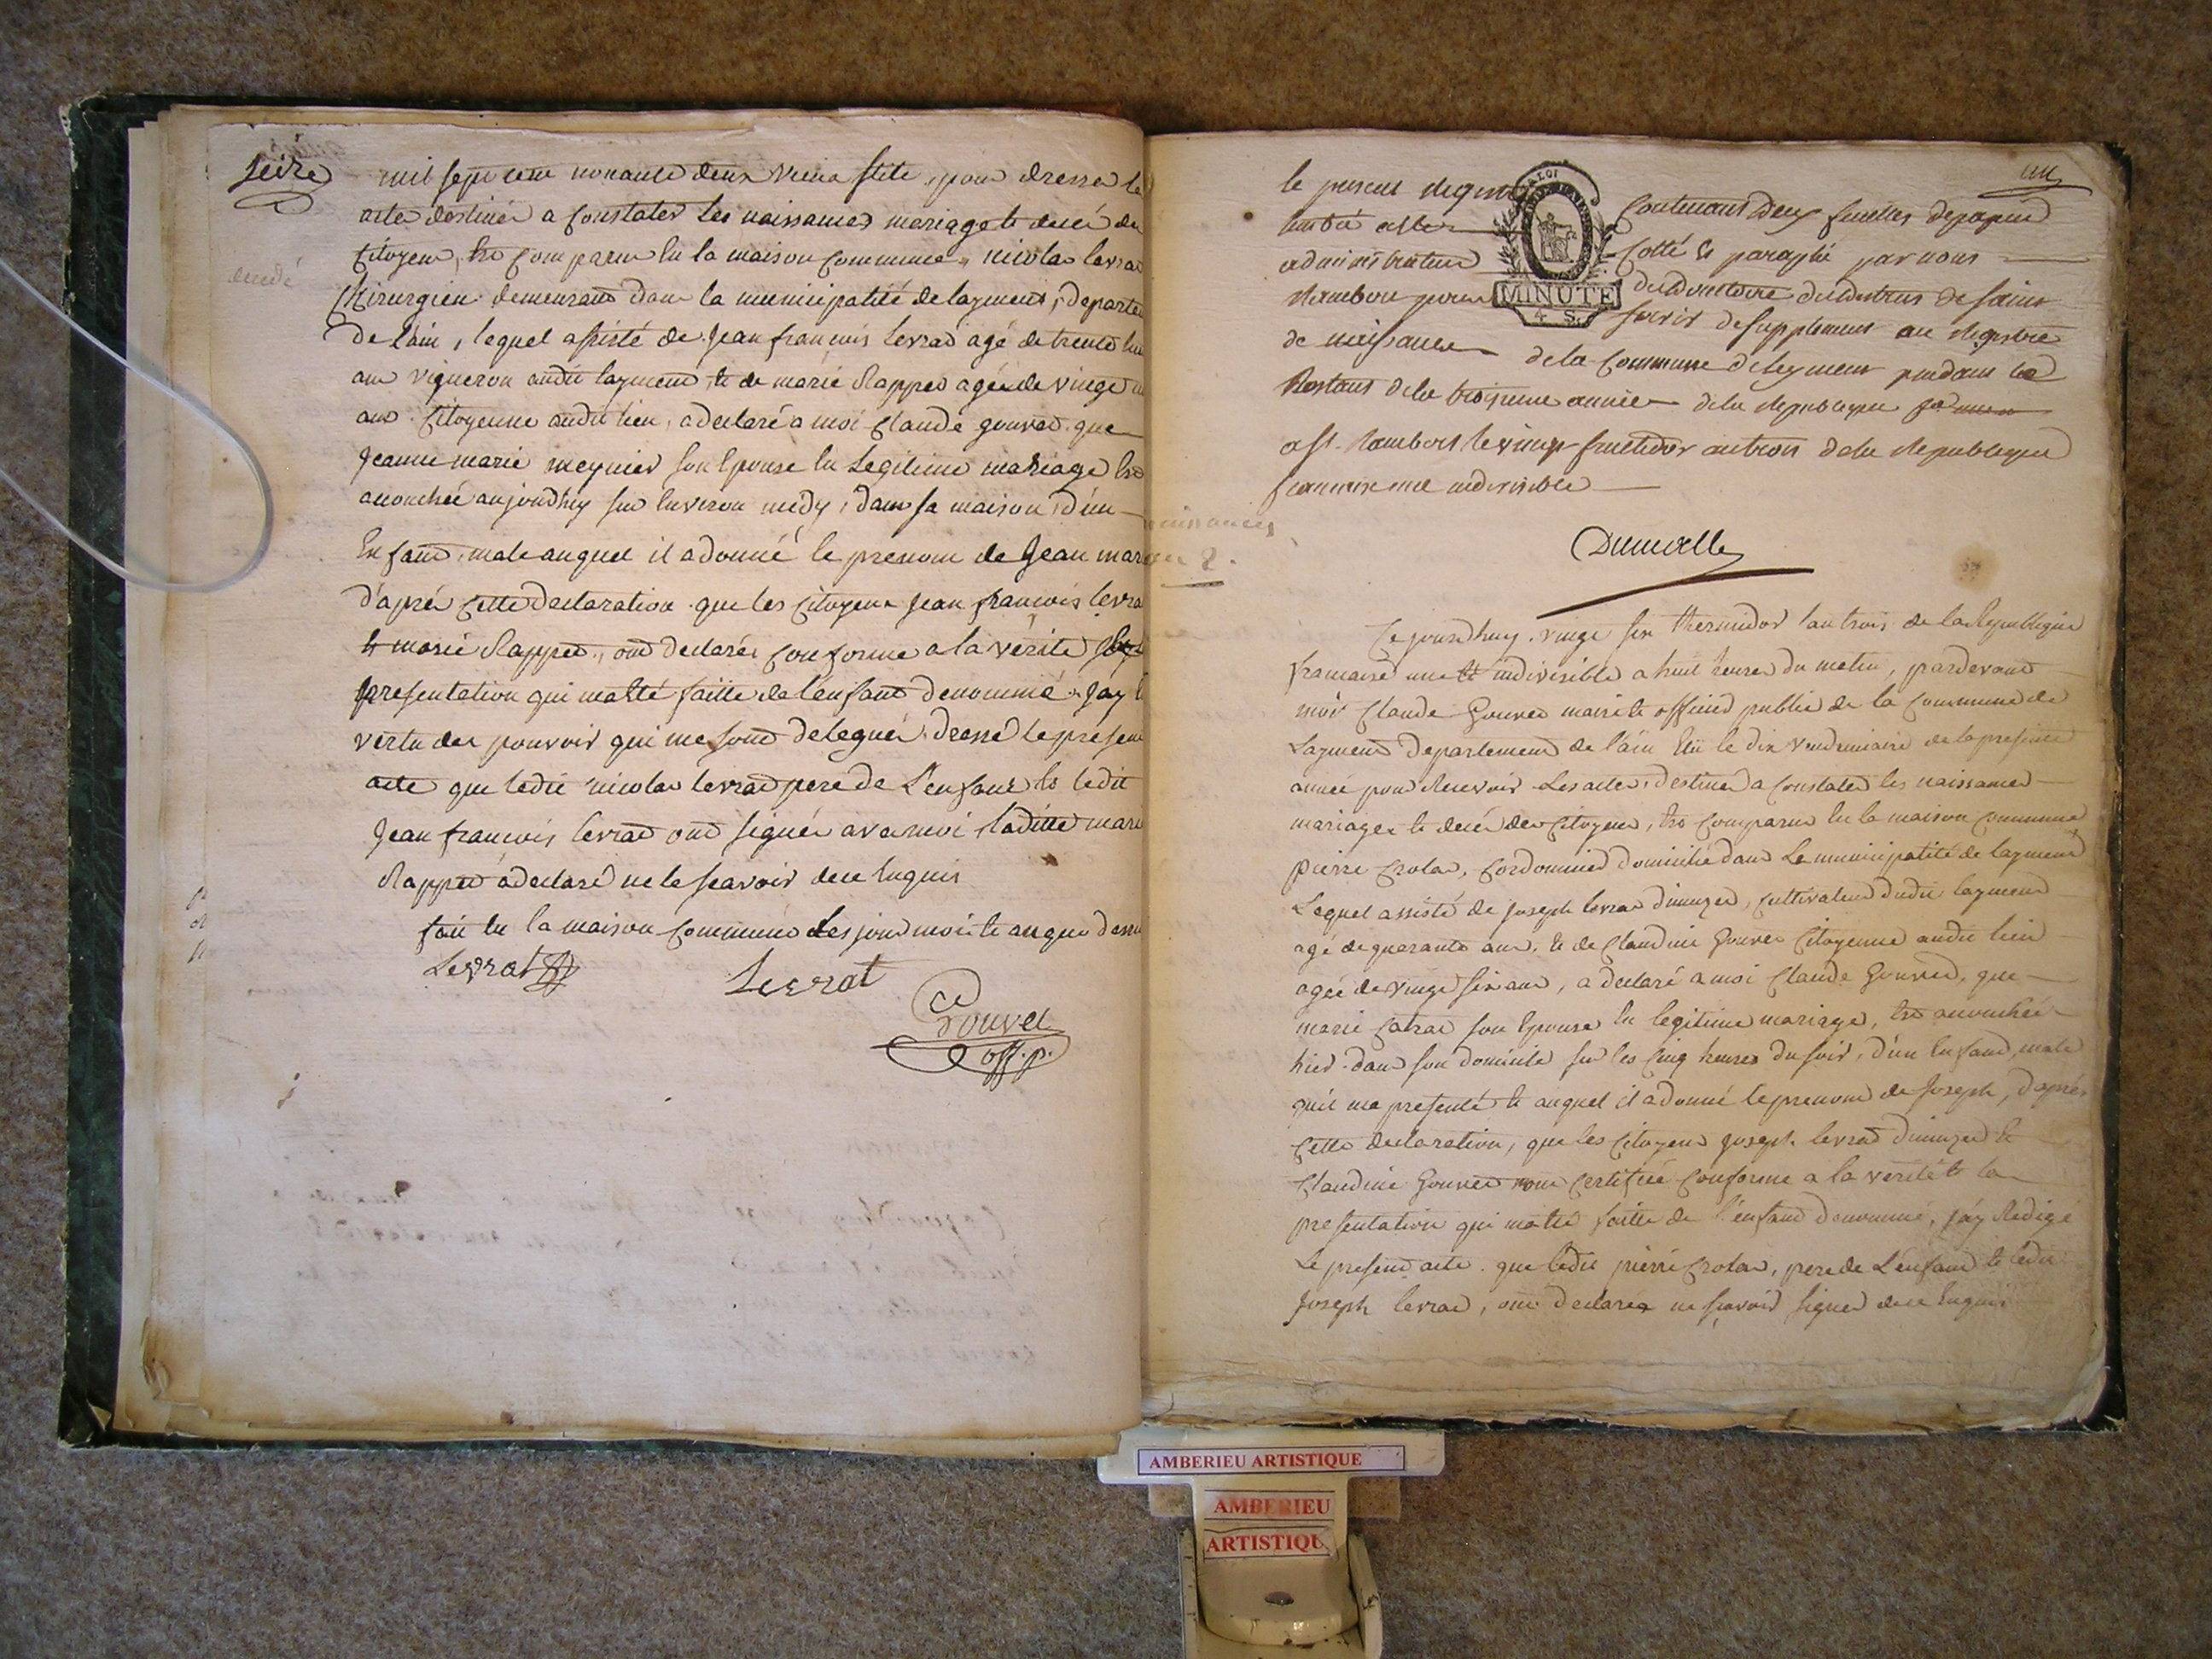 seize
mil sept cent nonante deux vieux stile, pour dresser les
actes destinés a Constater les naissances mariage et decé des
Citoyens, est Comparu en la maison Commune, nicolas levrat
decedé
Chirurgien demeurant dans la municipalité de layment, departe
de l'ain, lequel assisté de jean françois levrat agé de trente
ans vigneron audit layment, et de marie Rappet agée de vingt
ans Citoyenne audit lieu, a declaré a moi Claude gouvet que
Jeanne marie meynier son Epouse en Legitime mariage est
accouchée aujourdhuy sur Environ midy, dans sa maison, d'un
Enfant male auquel il a donné le prenom de Jean mar
d'aprés Cette declaration que les Citoyens jean françois levra
et marie Rappet, ont declarés Conforme a la vérité
presentation qui ma été faitte de l'enfant denommé, jay
vertu des pouvoir qui me sont delegués, dressé le present
acte que ledit nicolas levrat pere de L'enfant et ledit
jean françois levrat ont signés avec moi, laditte mari
Rappet a declaré ne le scavoir de ce Enquis
fait en la maison Commune les jour mois et an que dessu
Levrat Levrat
Ce Gouvet
off. p.
un
le present Registre Contenant deux feuilles de papier
timbré Cotté et paraphé par nous
administrateur du Directoire du district de saint
Rambert pour servir de supplement au Registre
de naissances de la Commune de leyment pendant le
Restant de la troisieme année de la Republique
a st. Rambert le vingt fructidor an trois de la Republique
francaise une indivisible
LA LOI
MINUTE
4 S.
naissances
Ce jourdhuy vingt six thermidor l'an trois de la Republique
francaise une et indivisible a huit heures du matin, pardevant
moi Claude Gouvet maire et officier public de la Commune de
Layment departement de l'ain Elu le dix vendemiaire de la presente
année pour Recevoir Les actes destinés a Constater les naissances
mariages et decés des Citoyens, est Comparu en la maison Commune
pierre Crolas, Cordonnier domicilié dans La municipalité de layment
Lequel assisté de joseph levrat dimuzet, Cultivateur dudit layment
agé de quarante ans, et de Claudine Gouvet Citoyenne audit lieu
agée de vingt six ans, a declaré a moi Claude Gouvet, que
marie son Epouse en legitime mariage, est accouchée
hier dans son domicile sur les Cinq heures du soir, d'un Enfant male
quil ma presenté et auquel il a donné le prenom de joseph, d'aprés
Cette declaration, que les Citoyens joseph levrat dimuzet et
Claudine Gouvet ont Certifié Conforme a la verité et la
presentation qui ma été faitte de l'enfant denommé, jay Redigé
Le present acte que ledit pierre Crolas, pere de L'enfant et ledit
joseph levrat, ont declarés ne scavoir signer de ce Enquis
AMBERIEU ARTISTIQUE
AMBERIEU
ARTISTIQU